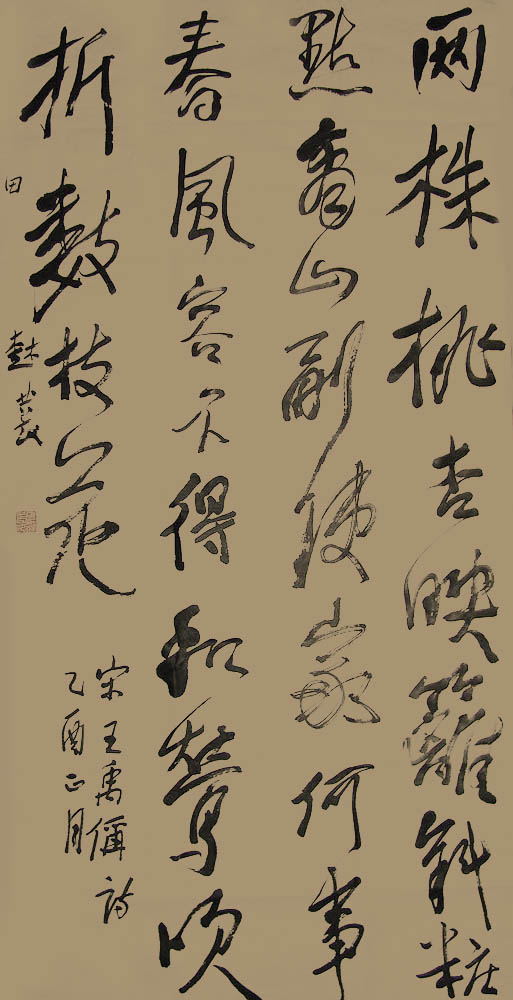 兩株桃杏映籬斜粧
點商山副使家何事
春風容不得和鶯吹
折數枝花
宋王禹偁詩
乙酉正月
田樹萇